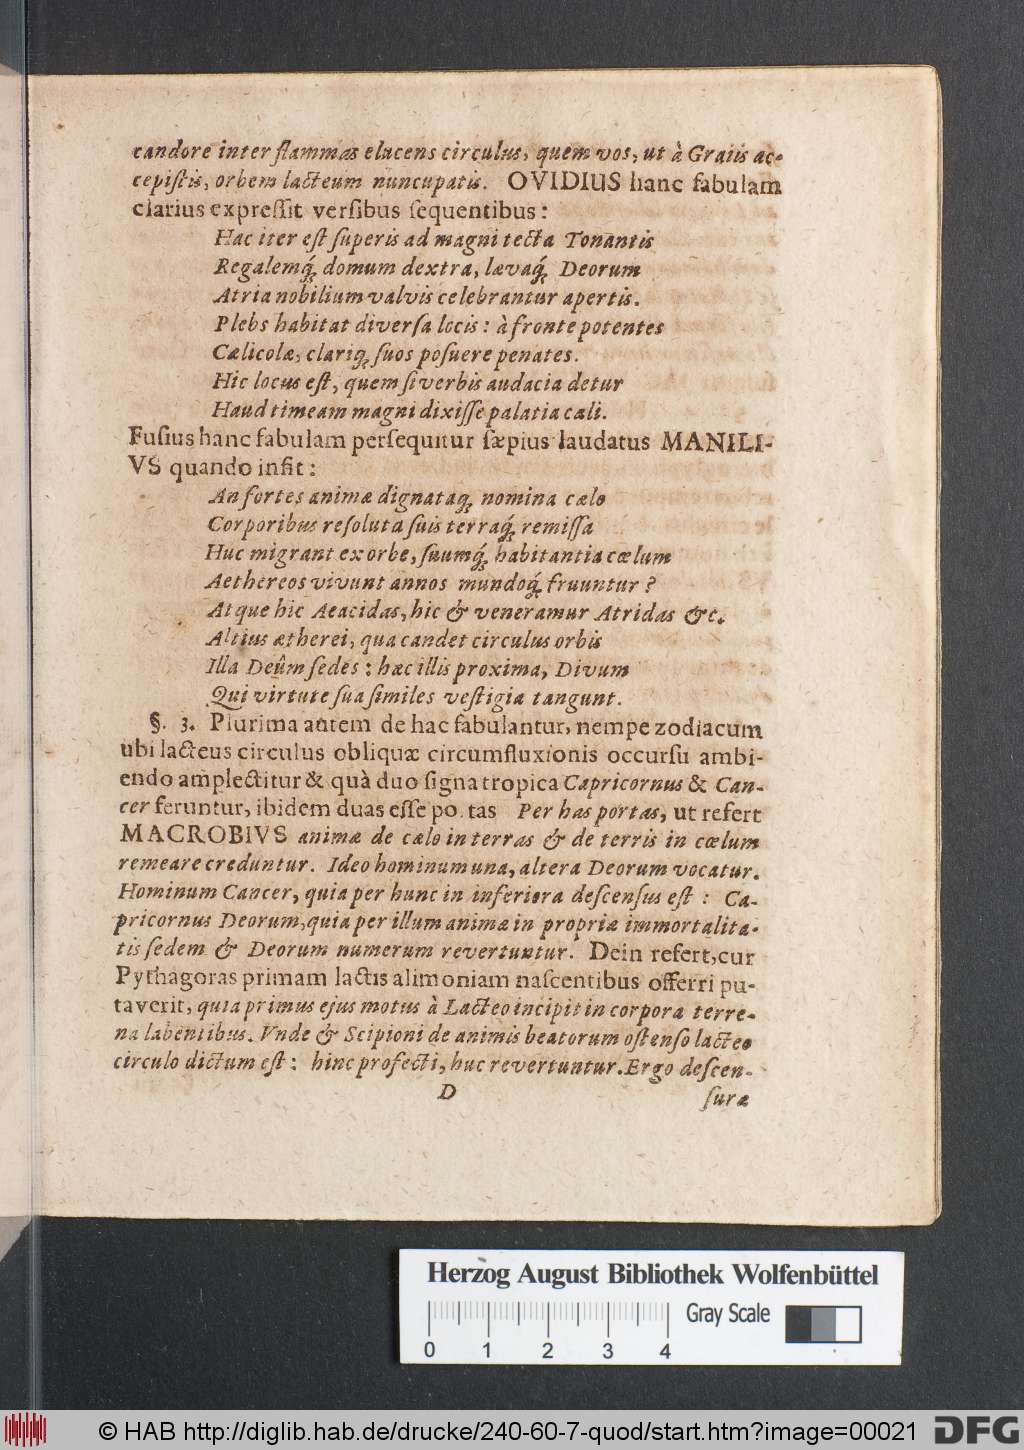 candore inter flammas elucens circulus, quem vos, ut à Graiis ac-
cepiſtis, orbem lacteum nuncupatis. OVIDIUS hanc fabulam
clarius expreſſit verſibus ſequentibus:
Hac iter eſt ſuperis ad magni tecta Tonantis
Regalemq́; domum dextra, lævaq́; Deorum
Atria nobilium valvis celebrantur apertis.
Plebs habitat diverſa locis: à fronte potentes
Cælicolæ, clariq; ſuos poſuere penates.
Hic locus eſt, quem ſi verbis audacia detur
Haud timeam magni dixiſſe palatia cæli.
Fuſius hanc fabulam perſequitur ſæpius laudatus MANILI-
VS quando infit:
An fortes animæ dignataq; nomina cælo
Corporibus reſoluta ſuis terraq́; remiſſa
Huc migrant ex orbe, ſuumq́; habitantia cœlum
Aethereos vivunt annos mundoq́; fruuntur?
Atque hic Aeacidas, hic & veneramur Atridas &c.
Altius ætherei, qua candet circulus orbis
Illa Deûm ſedes: hæc illis proxima, Divum
Qui virtute ſua ſimiles veſtigia tangunt.
§. 3. Plurima autem de hac fabulantur, nempe zodiacum
ubi lacteus circulus obliquæ circumfluxionis occurſu ambi-
endo amplectitur & quà duo ſigna tropica Capricornus & Can-
cer feruntur, ibidem duas eſſe po tas Per has portas, ut refert
MACROBIVS animæ de cælo in terras & de terris in cœlum
remeare creduntur. Ideo hominum una, altera Deorum vocatur.
Hominum Cancer, quia per hunc in inferiora deſcenſus eſt: Ca-
pricornus Deorum, quia per illum animæ in propriæ immortalita-
tis ſedem & Deorum numerum revertuntur. Dein refert, cur
Pythagoras primam lactis alimoniam naſcentibus offerri pu-
taverit, quia primus ejus motus à Lacteo incipit in corpora terre-
na labentibus. Vnde & Scipioni de animis beatorum oſtenſo lacteo
circulo dictum eſt: hinc profecti, huc revertuntur. Ergo deſcen-
D
ſuræ
Herzog August Bibliothek Wolfenbüttel
Gray Scale
0 1 2 3 4
© HAB http://diglib.hab.de/drucke/240-60-7-quod/start.htm?image=00021
DFG